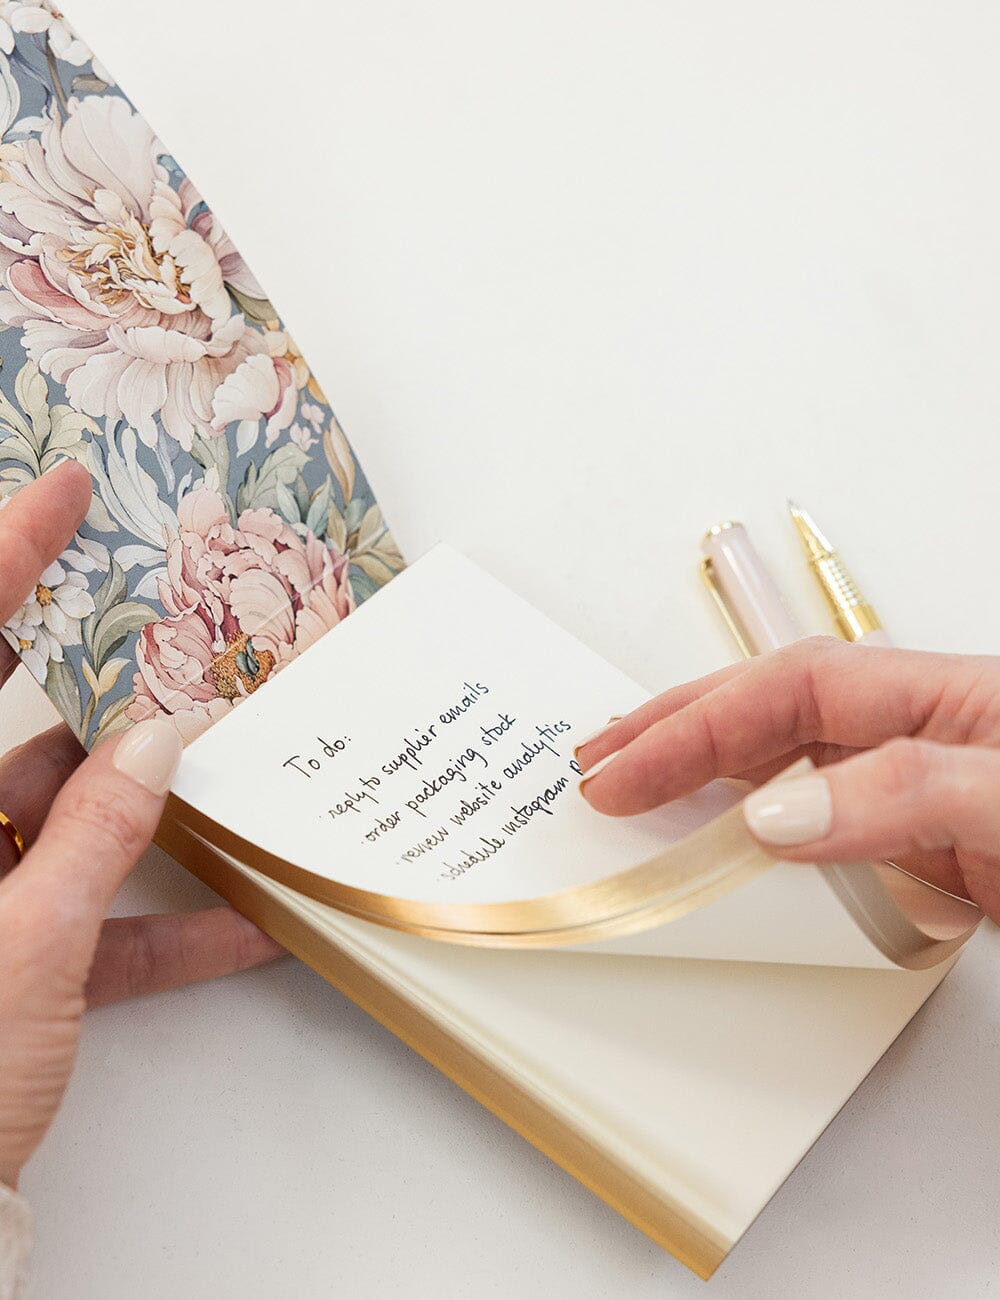 To do:
· reply to supplier emails
· order packaging stock
· review website analytics
· schedule instagram p